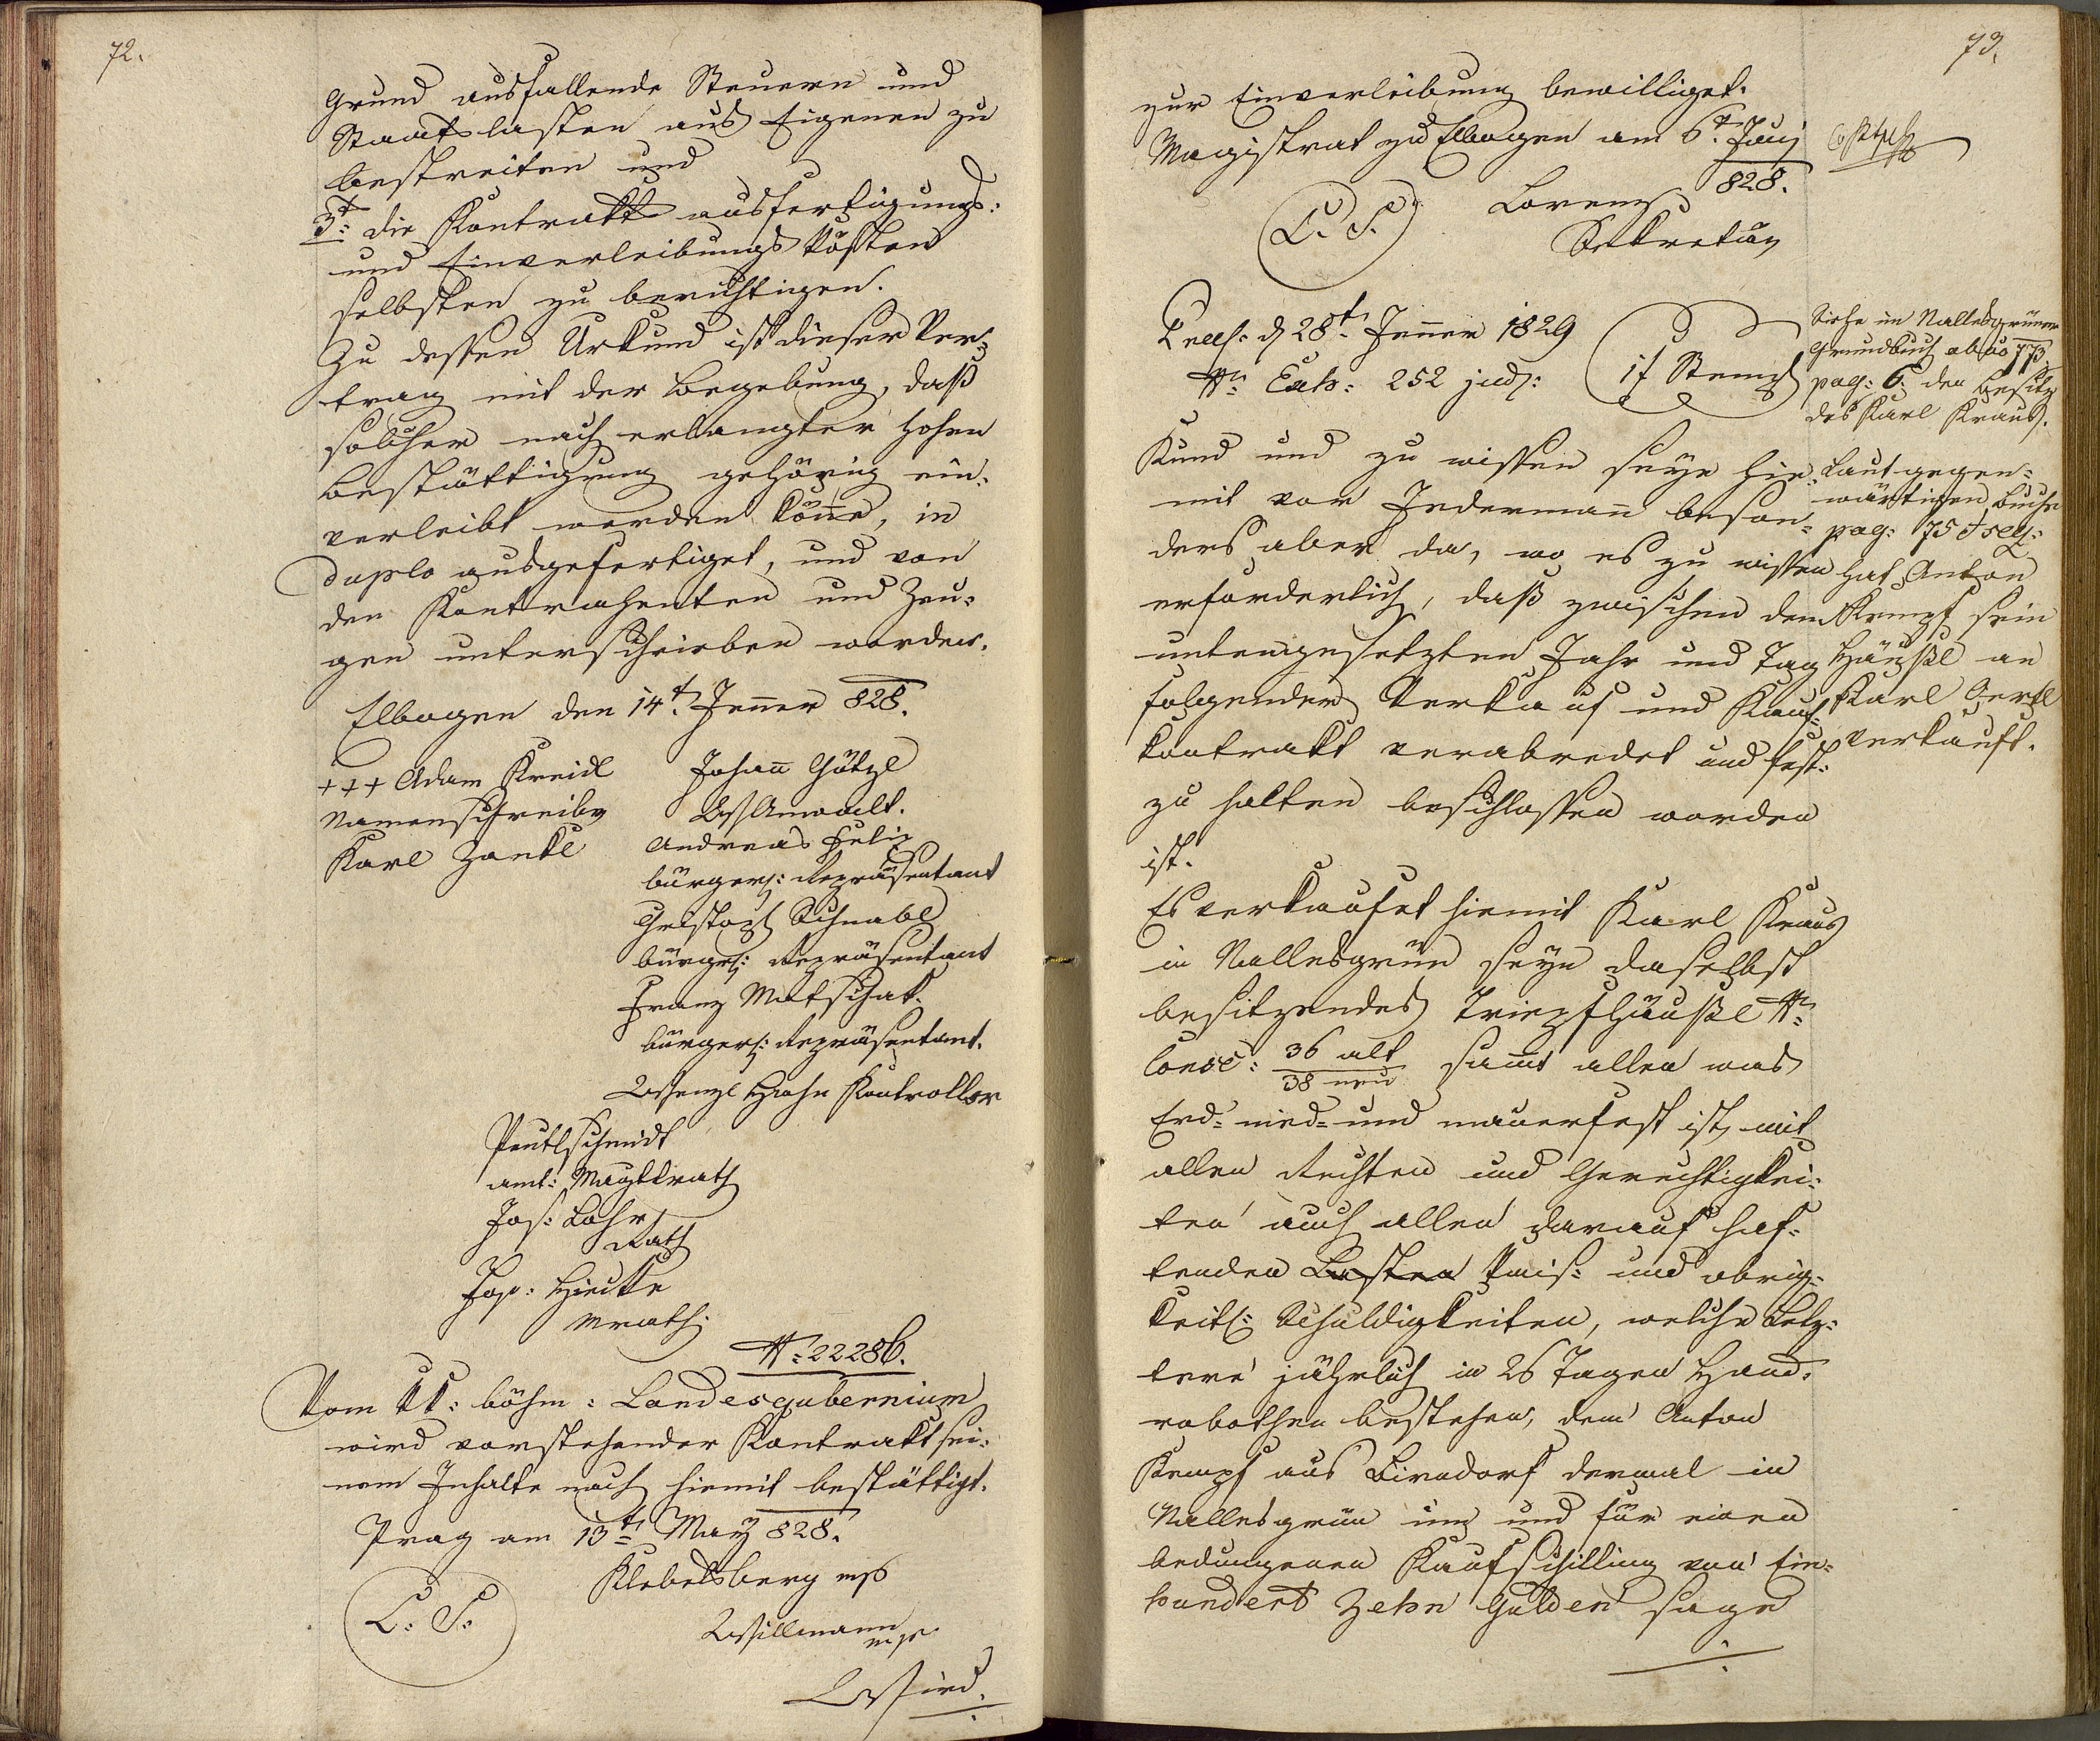 72.
Grund ausfallende Steuern und
Staatslasten aus Eigenen zu
bestreiten und
3t: die Kontrakts ausfertigungs:
und Einverleibungs kösten
selbsten zu berichtigen.
Zu dessen Urkund ist dieser Ver-
trag mit der Begebung, daß
solcher nach erlangter hohen
Bestättigung gehörig ein:
verleibt werden könne, in
duplo ausgefertiget, und von
den Kontrahenten und Zeu:
gen unterschrieben worden.
Elbogen den 14t. Jenner 828.
+++ Adam Kreidl
Namenschreiber
Karl Zankl
Johann Götzl
Anwalt.
Andreas
bürgerl: Repräsentant
Christoph Schnabl
bürgl: Repräsentant
Franz Matschak.
bürgerl: Repräsentant.
Wenzl Hahn Kontrollor
Peutlschmidt
amt: Magstrath
Jos: Lohr
Rath
Jos:
Mrath:
N: 22286.
Vom kk: böhm: Landesgubernium
wird vorstehender Kontrakt sei:
nem Inhalte nach hiemit bestättigt.
Prag am 13t May 828.
Klebelsberg mp
L: S:
Willmann
mp
Wird.
73.
zur Einverleibung bewilliget.
Magistrat zu Elbogen am 6t. Junj
828.
L. S.
Lorenz
Sekretär
Praes: d 28t. Jenner 1829
Nr. Exh: 252 jud:
1f Stempl
Siehe im Nallesgrüner
Grundbuch
pag: 6. den Besitz
des Karl Kraus.
Kund und zu wissen seye hie-
mit vor Jedermann beson-
ders aber da, wo es zu wissen
erforderlich, daß zwischen dem
untengesetzten Jahr und Tag
folgender Verkauf und Kauf-
kontrakt verabredet und fest:
zu halten beschlossen worden
ist.
Laut gegen:
wärtigen Buche
pag: 75 et seq:
hat Anton
Kempf sein
Häußl an
Karl Gertl
verkauft.
Es verkaufet hiemit Karl Kraus
in Nallesgrün seyn daselbst
besitzendes Tripfhäußl N:
Consc: 36 alt
38 neu samt allen was
Erd- nied- und mauerfest ist, mit
allen Rechten und Gerechtigkei:
ten auch allen darauf haf-
tenden Lasten kais: und obrig-
keitl: Schuldigkeiten, welche Letz:
tere jährlich in 26 Tagen Hand:
robothen bestehen, dem Anton
Kempf aus Birndorf dermal in
Nallesgrün um und für einen
bedungenen Kaufschilling von Ein-
hundert Zehn Gulden sage